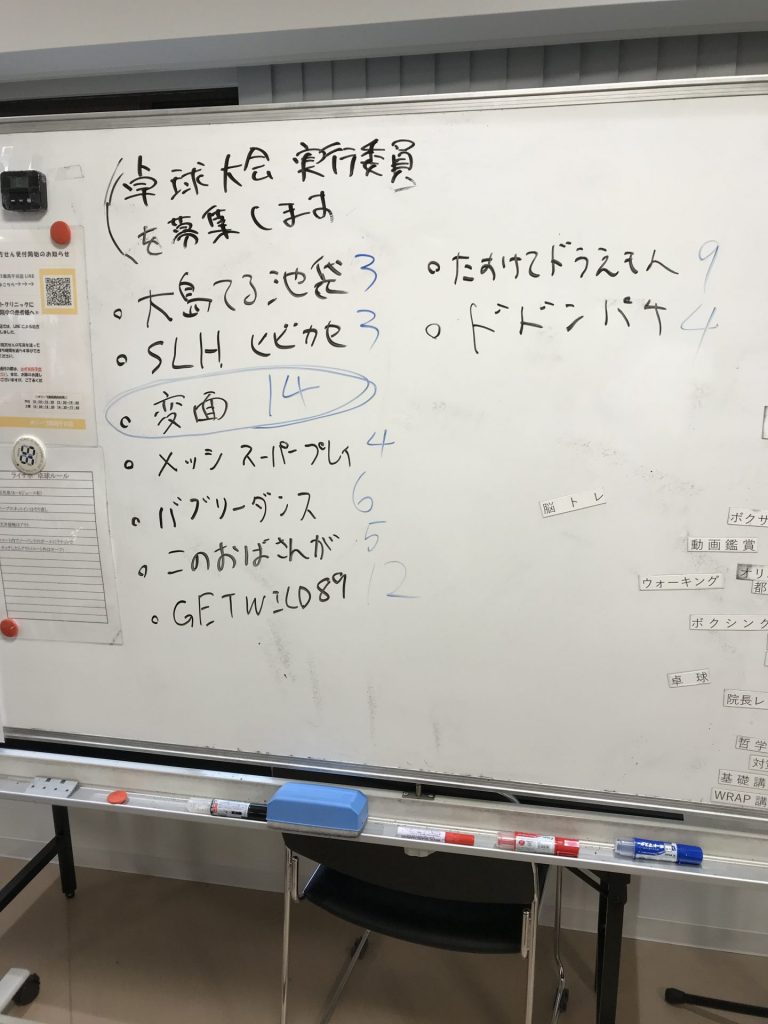 卓球大会 実行委員
を募集します
大島てる 池袋 3
SLH ヒビカセ 3
変面 14
メッシ スーパープレイ 4
バブリーダンス 6
このおばさんが 5
GETWILD89 12
たすけてドラえもん 9
ドドンパチ 4
方せん受付開始のお知らせ
トクリニックに
卓球ルール
脳トレ
ボクサ
動画鑑賞
オリ
ウォーキング
都
ボクシング
卓球
院長レ
哲学
対
基礎講
WRAP講